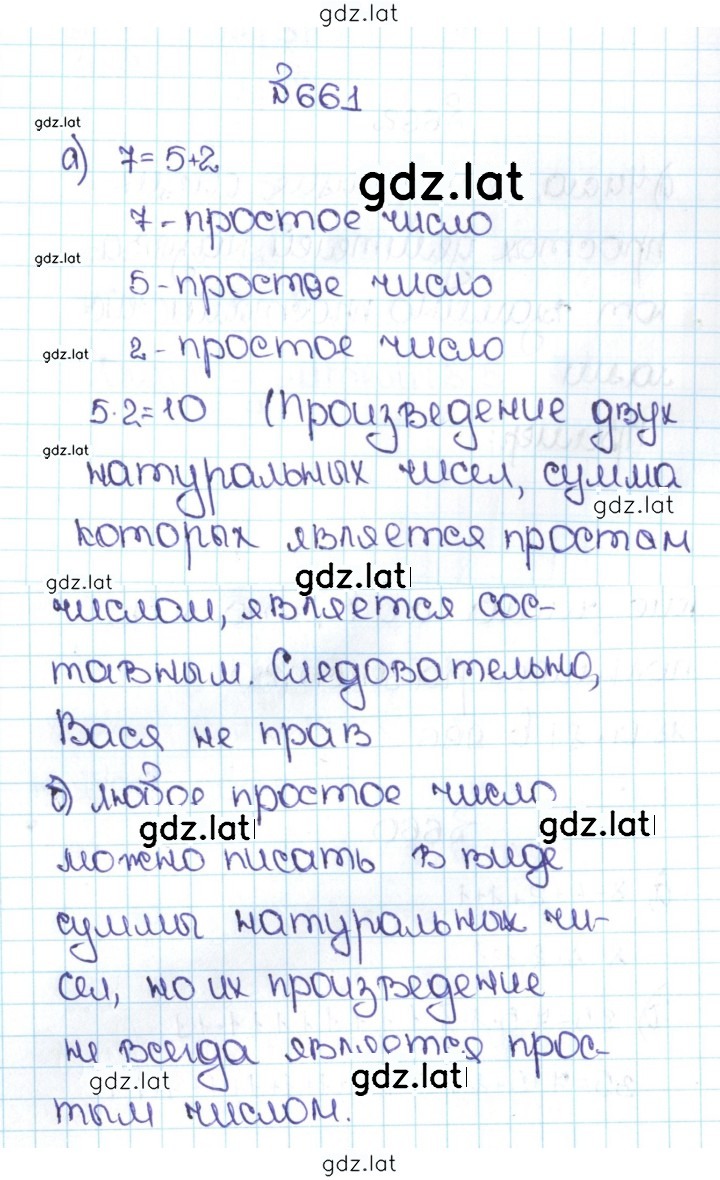 gdz.lat
№661
gdz.lat
а) 7=5+2
gdz.lat
7-простое число
gdz.lat
5-простое число
gdz.lat
2-простое число
5·2=10 (Произведение двух
gdz.lat
натуральных чисел, сумма
gdz.lat
которых является простам
gdz.lat
gdz.lat
числом, является сос-
тавным. Следовательно,
Вася не прав
б) любое простое число
gdz.lat
gdz.lat
можно писать в виде
суммы натуральных чи-
сел, но их произведение
не всегда является прос-
gdz.lat
gdz.lat
тым числом.
gdz.lat